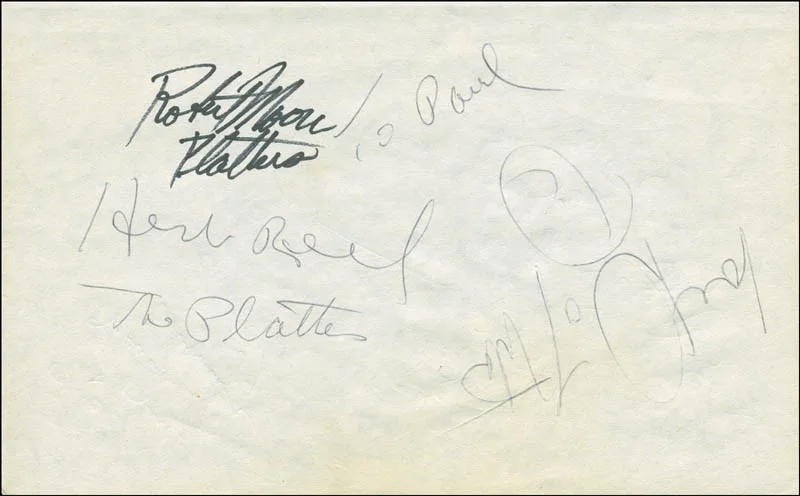 To Paul
Robert Moore
Platters
Herb Reed
The Platters